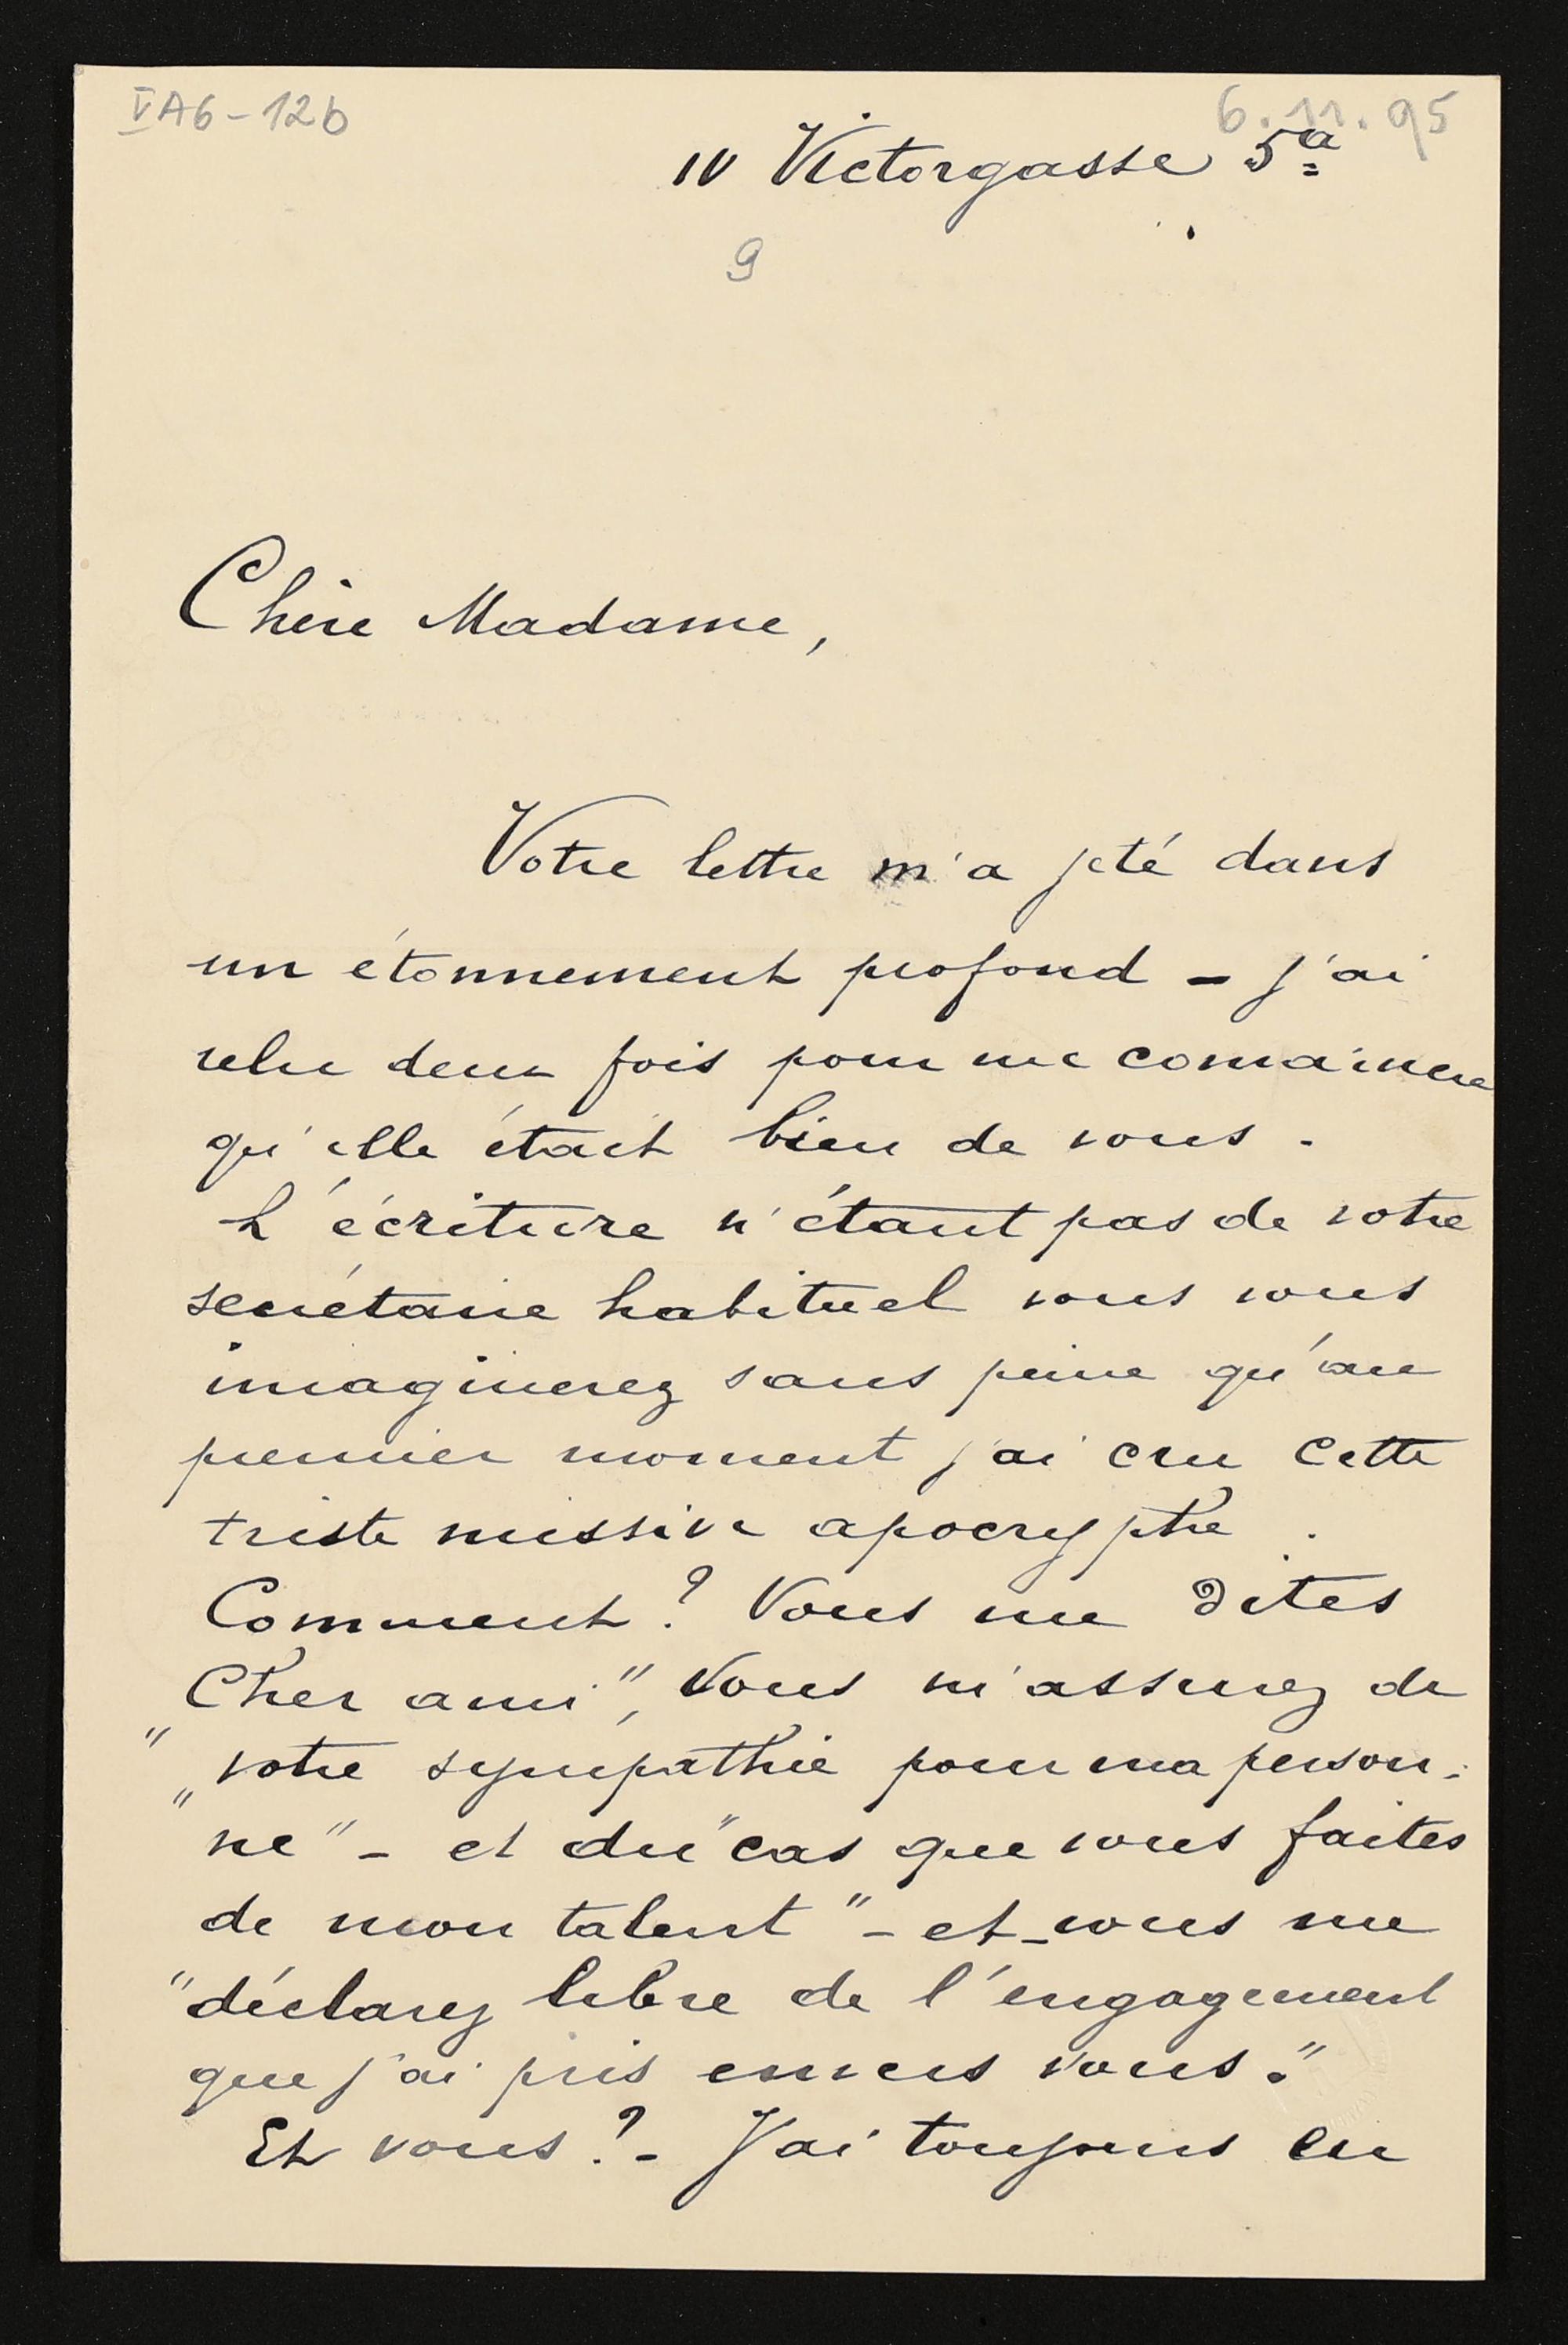 VA6-12b
6.11.95
IV Victorgasse 5a
9
Chère Madame,
Votre lettre m'a jeté dans
un étonnement profond - j'ai
relu deux fois pour me convaincre
qu'elle était bien de vous.
L'écriture n'étant pas de votre
secrétaire habituel vous vous
imaginerez sans peine qu'au
premier moment j'ai cru cette
triste missive apocryphe.
Comment? Vous me dites
"Cher ami", Vous m'assurez de
"votre sympathie pour ma person-
ne" - et du "cas que vous faites
de mon talent" - et - vous me
"déclarez libre de l'engagement
que j'ai pris envers vous."
Et vous? - J'ai toujours eu